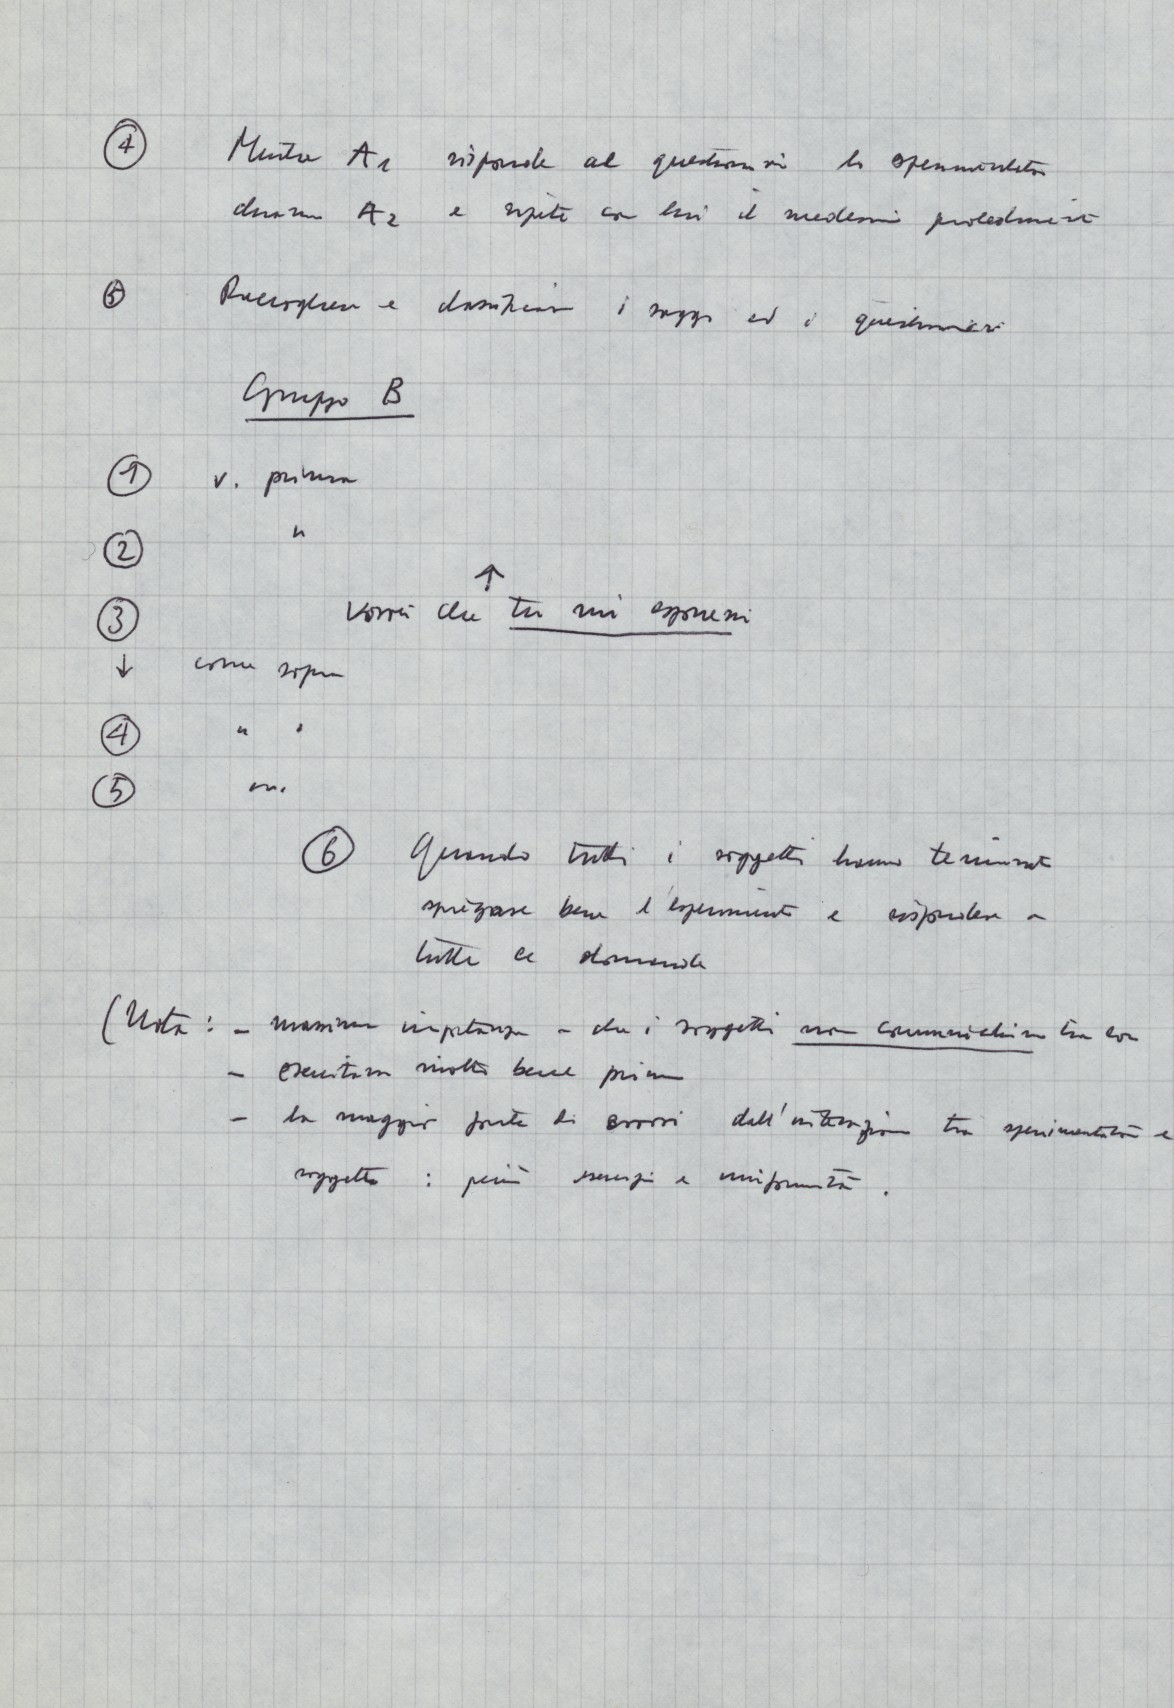 ④ Mentre A1 risponde al questionario lo sperimentatore
chiama A2 e ripete con lui il medesimo procedimento
⑤ Raccogliere e classificare i saggi ed i questionari
Gruppo B
① v. prima
② "
↑
③ vorrei che tu mi esponessi
↓ come sopra
④ " "
⑤
⑥ Quando tutti i soggetti hanno terminato
spiegare bene l'esperimento e rispondere a
tutte le domande
(Nota: - massima importanza - che i soggetti non comunichino tra loro
- esercitarsi molto bene prima
- la maggior fonte di errori dall'interazione tra sperimentatore e
soggetto : più esercizi e uniformità.